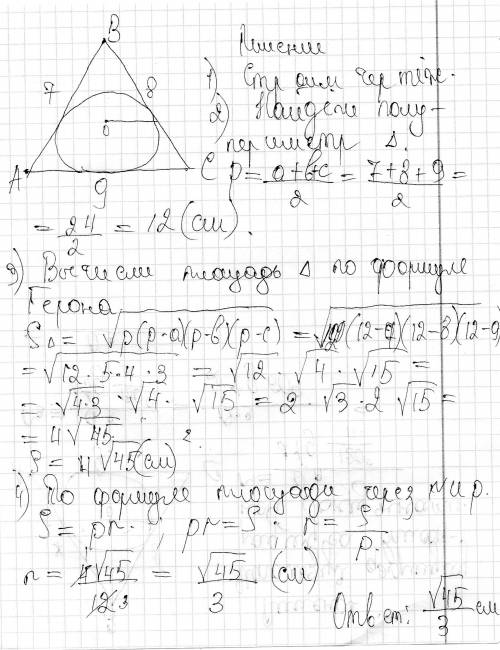 B
Решение
1) Строим чертёж.
7
8
2) Найдём полу-
периметр Δ.
O
A
C
9
p = (a+b+c)/2 = (7+8+9)/2 =
= 24/2 = 12 (см).
3) Вычисли площадь Δ по формуле
Герона
SΔ = √(p(p-a)(p-b)(p-c)) = √(12(12-7)(12-8)(12-9))
= √(12·5·4·3) = √12 · √4 · √15 =
= √(4·3) · √4 · √15 = 2 √3 · 2 √15 =
= 4√45
S = 4√45 (см)²
4) По формуле площади через r и p.
S = pr. ; pr = S. r = S/p.
r = 4√45/12·3 = √45/3 (см)
Ответ: √45/3 см